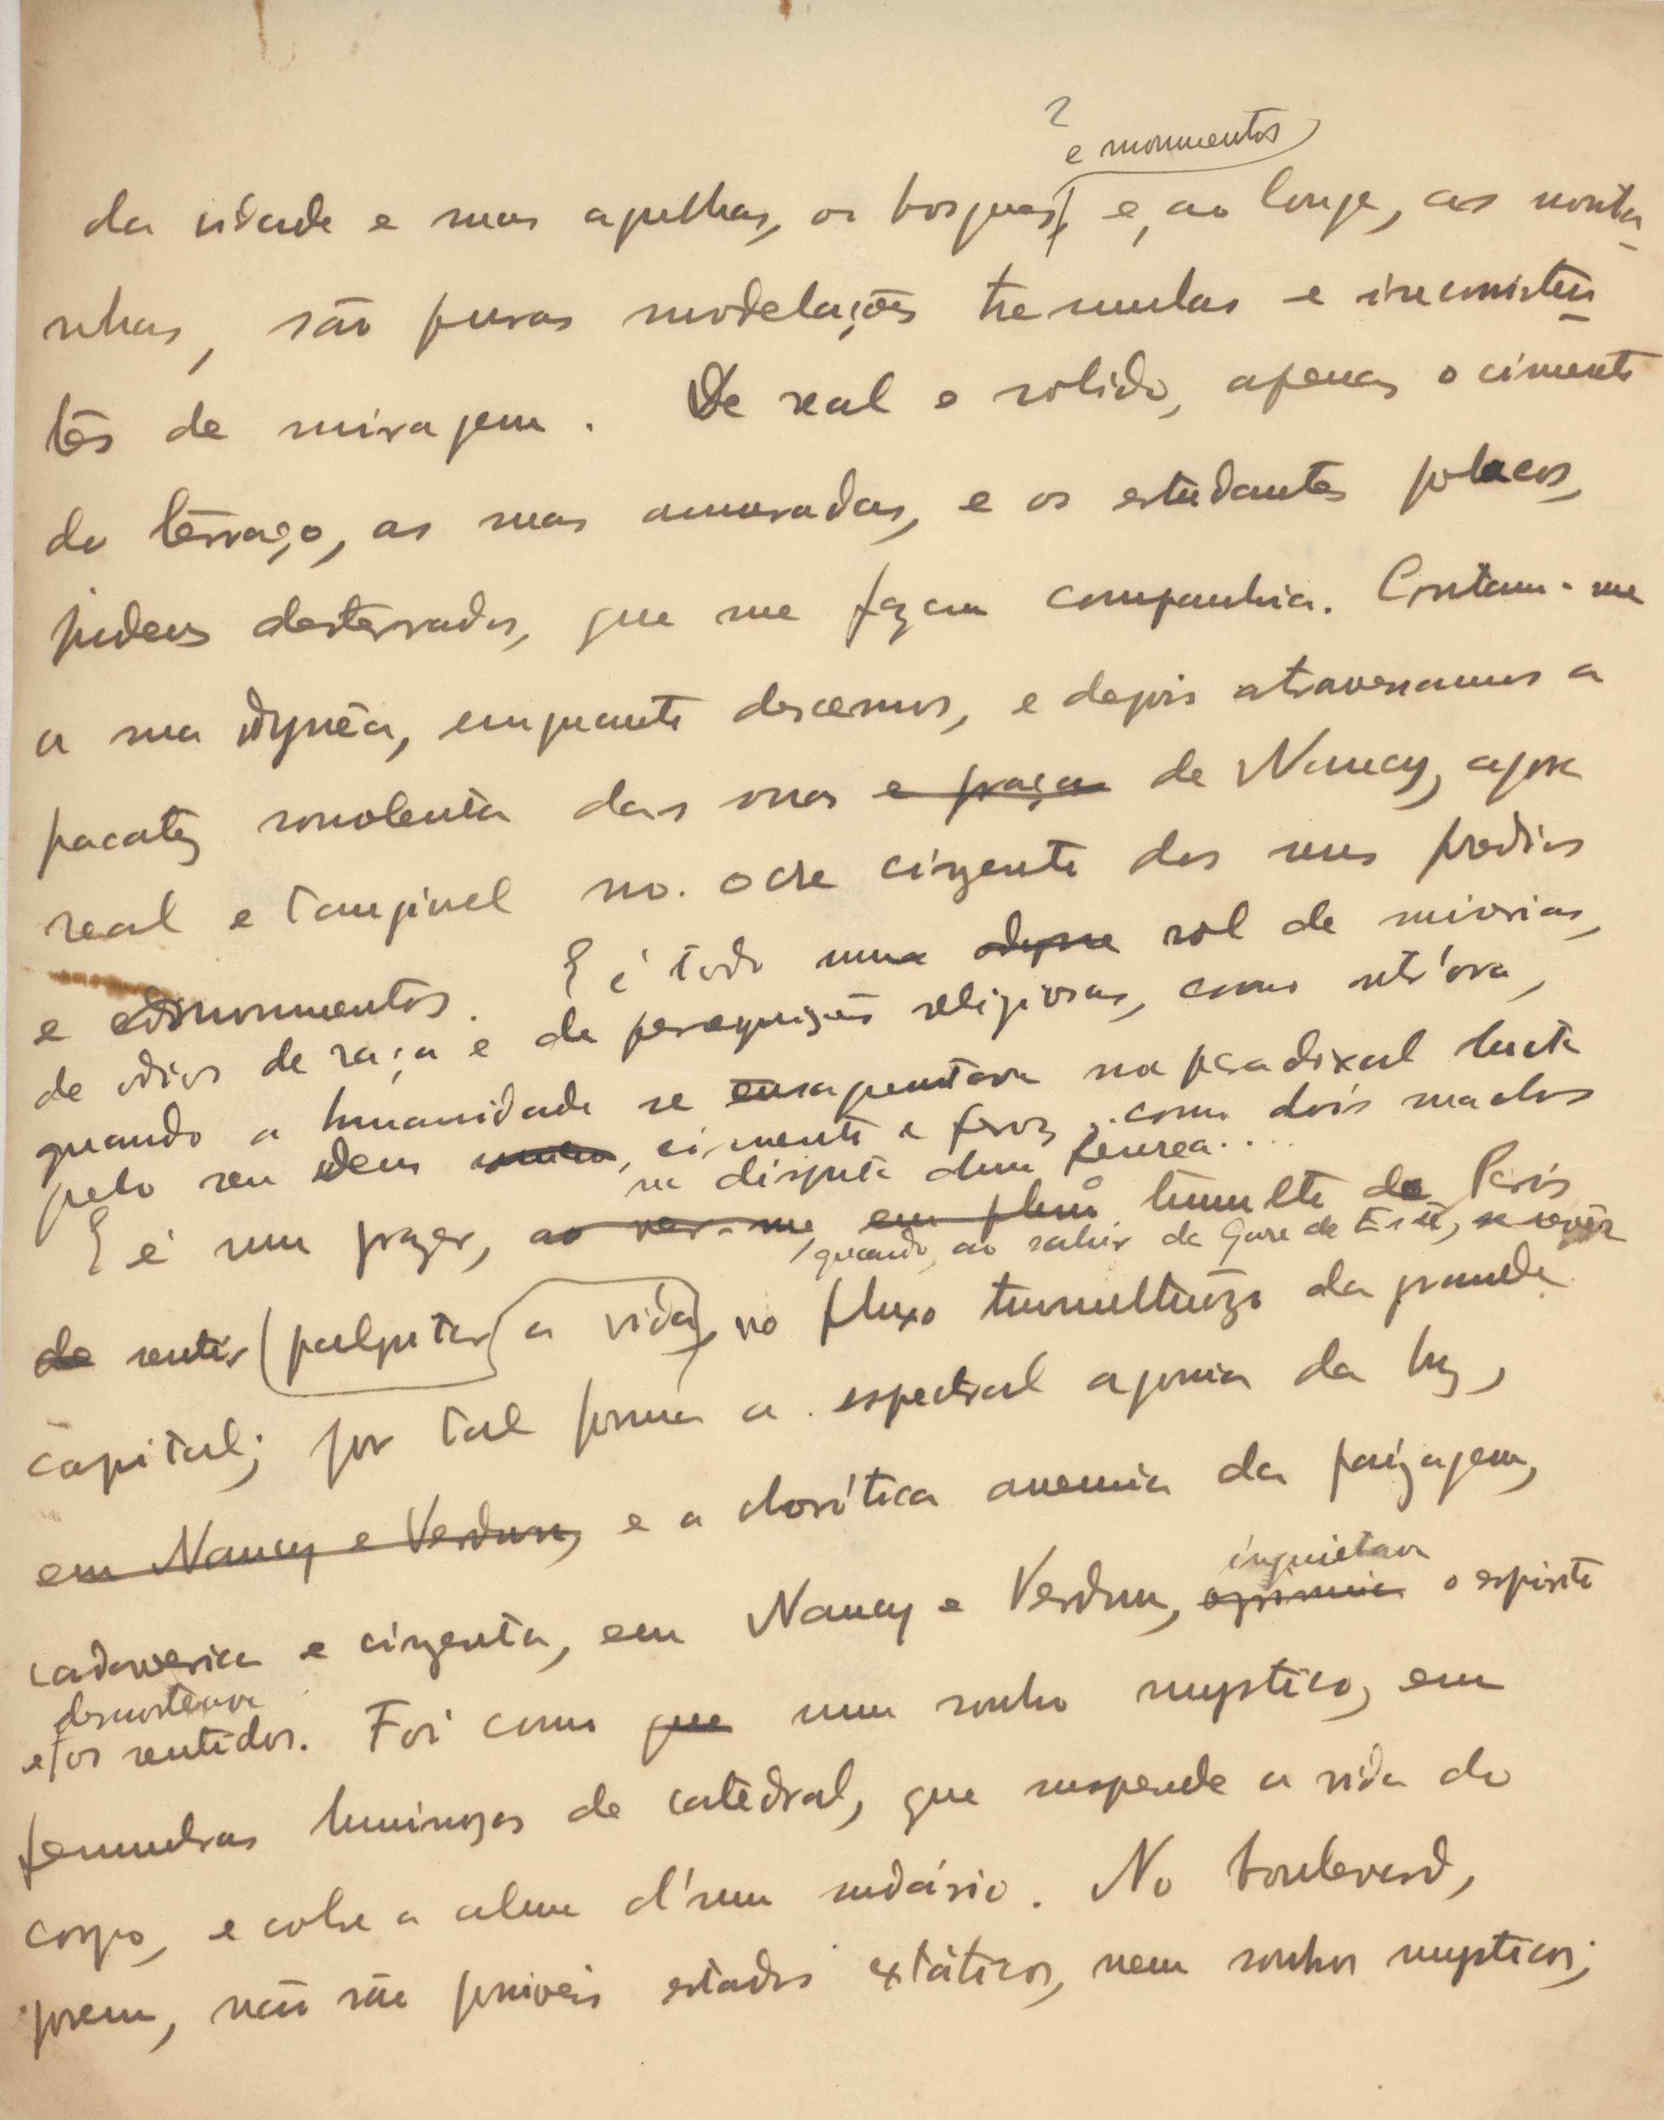 ?
e monumentos
da cidade e suas agulhas, os bosques, e, ao longe, as monta-
nhas, são puras modelações tremulas e inconsisten-
tes de miragem. De real e solido, apenas o cimento
do terraço, as suas amuradas, e os estudantes polacos,
judeus desterrados, que me fazem companhia. Contam-me
a sua odyssêa, emquanto descemos, e depois atravessamos a
pacatez sonolenta das ruas e praças de Nancy, agora
real e tangivel no ocre cinzento dos seus predios
e monumentos. E é todo um rol de miserias,
de odios de raça e de perseguições religiosas, como outr'ora,
quando a humanidade se ensaguentava na paradoxal lucta
pelo seu Deus, ciumento e feroz, como dois machos
na disputa duma femea....
E é um prazer, ao ver-me, em pleno tumulto de Paris
quando, ao sahir da Gare de Est, se
de sentir palpitar a vida, no fluxo tumultuozo da grande
capital; por tal forma a espectral agonia da luz,
em Nancy e Verdun, e a clorótica anemia da paizagem,
inquietava
cadaverica e cinzenta, em Nancy e Verdun, oprimia o espirito
desnorteava
e os sentidos. Foi como que um sonho mystico, em
penumbras luminozas de catedral, que suspende a vida do
corpo, e colhe a alma d'um sudário. No boulevard,
porem, não são possiveis estados extáticos, nem sonhos mysticos;